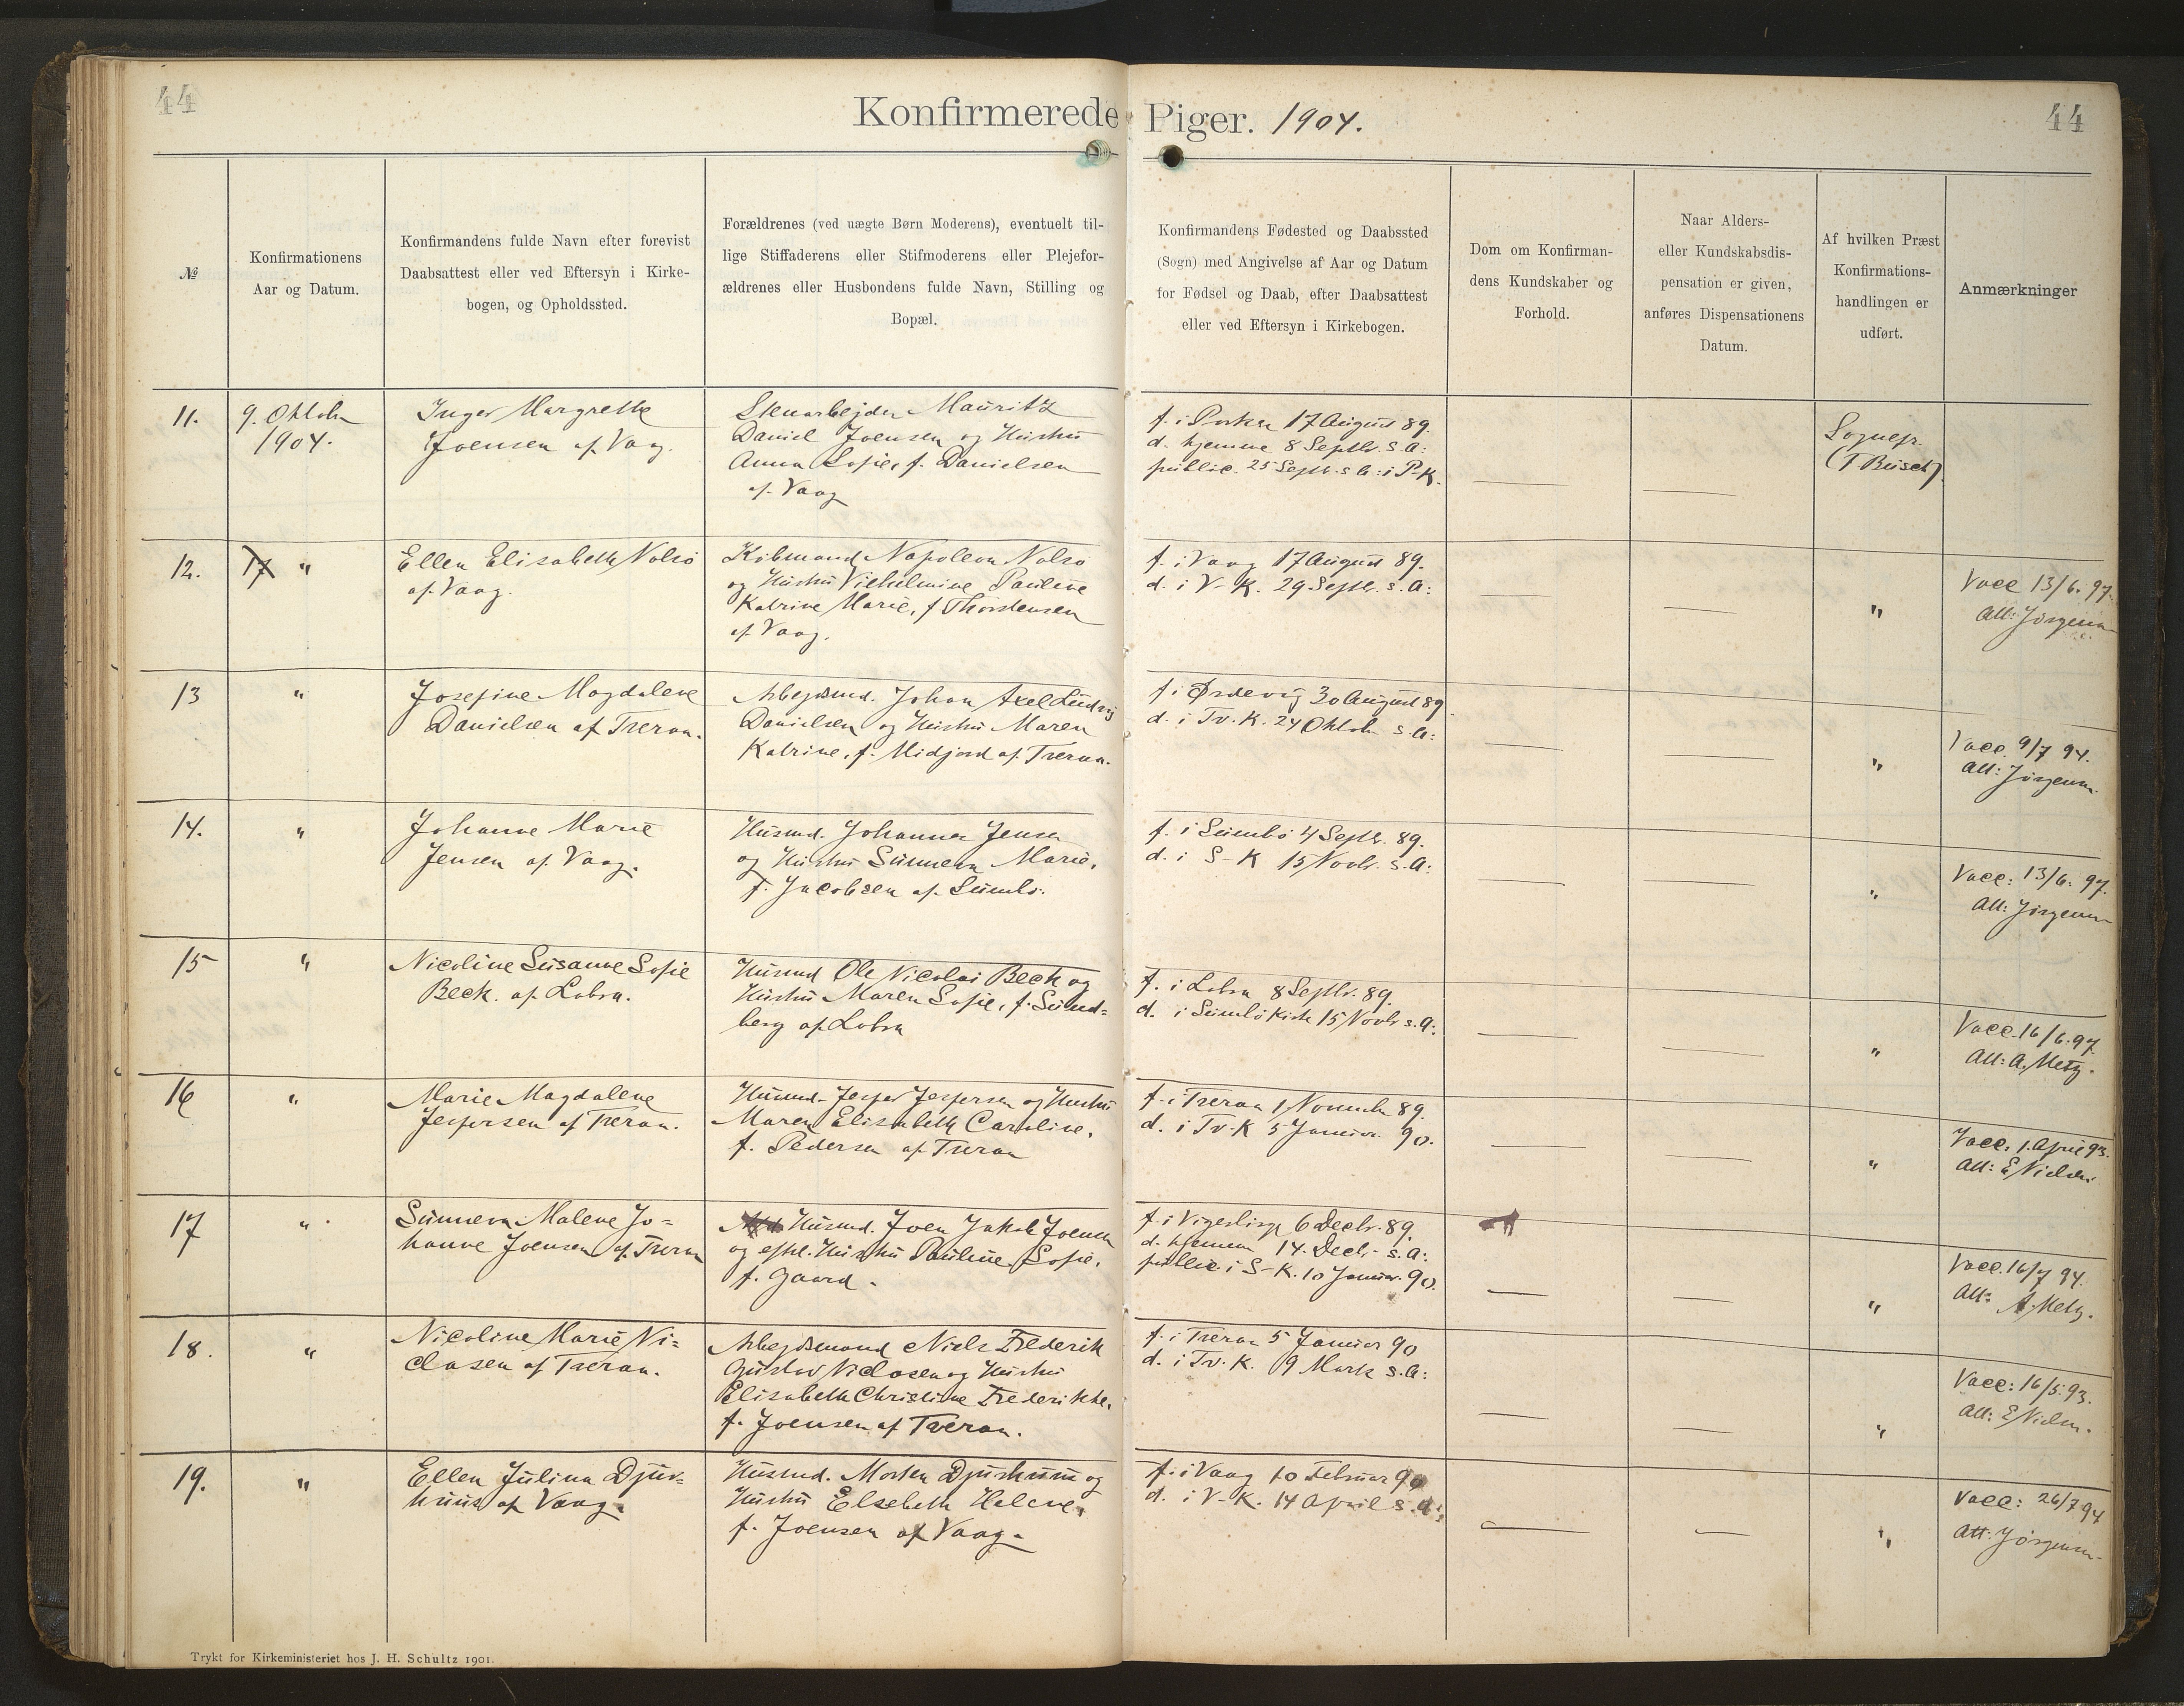 44
Konfirmerede Piger. 1904.
44
№
Konfirmationens
Aar og Datum.
Konfirmandens fulde Navn efter forevist
Daabsattest eller ved Eftersyn i Kirke-
bogen, og Opholdssted.
Forældrenes (ved uægte Børn Moderens), eventuelt til-
lige Stiffaderens eller Stifmoderens eller Plejefor-
ældrenes eller Husbondens fulde Navn, Stilling og
Bopæl.
Konfirmandens Fødested og Daabssted
(Sogn) med Angivelse af Aar og Datum
for Fødsel og Daab, efter Daabsattest
eller ved Eftersyn i Kirkebogen.
Dom om Konfirman-
dens Kundskaber og
Forhold.
Naar Alders-
eller Kundskabsdis-
pensation er given,
anføres Dispensationens
Datum.
Af hvilken Præst
Konfirmations-
handlingen er
udført.
Anmærkninger
11.
9. Oktobr
1904.
Inger Margrethe
Joensen af Vaag.
Stenarbejder Mauritz
Daniel Joensen og Hustru
Anna Sofie, f. Danielsen
af Vaag
f. i Porkere 17 August 89.
d. hjemme 8 Septbr. s. A:
public. 25 Septb. s. A: i P-K.
Sognepr.
(F. Busch)
12. "
Ellen Elisabeth Nolsø
af Vaag.
Købmand Napoleon Nolsø
og Hustru Vilhelmine Pauline
Katrine Marie, f. Thorstensen
af Vaag.
f. i Vaag 17 August 89.
d. i V-K. 29 Septbr. s. A:
"
Vacc 13/6. 97.
Att: Jörgensen
13 "
Josefine Magdalene
Danielsen af Tveraa.
Arbejdsmd. Johan Axel Ludvig
Danielsen og Hustru Maren
Katrine, f. Midjord af Tveraa.
f. i Ørdevig 30 August 89.
d. i Tv. K. 24 Oktobr s. A:
"
Vacc. 9/7 94.
Att: Jörgensen.
14. "
Johanne Marie
Jensen af Vaag.
Husmd. Johannes Jensen
og Hustru Sunneva Marie,
f. Jacobsen af Sumbø.
f. i Sumbø 4 Septbr. 89.
d. i S-K 15 Novbr. s. A:
"
Vacc: 13/6. 97.
Att: Jörgensen
15 "
Nicoline Susanne Sofie
Beck. af Lobra.
Husmd Ole Nicolai Beck og
Hustru Maren Sofie, f. Sund=
berg af Lobra
f. i Lobra 8 Septbr. 89.
d. i Sumbö Kirke 15 Novbr s. A:
"
Vacc. 16/6. 97.
Att: A. Metz.
16 "
Marie Magdalene
Jespersen af Tveraa.
Husmd. Jesper Jespersen og Hustru
Maren Elisabeth Caroline,
f. Pedersen af Tveraa
f. i Tveraa 1 Novembr 89.
d. i Tv. K 5 Januar 90.
"
Vacc. 1. April 93.
Att: E Nielsen
17 "
Sunneva Malene Jo=
hanne Joensen af Tveraa
Husmd. Joen Jakob Joensen
og Hustru Pauline Sofie,
f. Gaard.
f. i Vigerlinge 6 Decbr. 89.
d. hjemme 14. Decbr. s. A:
public i S-K. 10 Januar. 90.
"
Vacc. 16/7 94.
Att: A. Metz.
18. "
Nicoline Marie Ni=
clasen af Tveraa.
Arbejdsmand Niels Frederik
Gustav Niclasen og Hustru
Elisabeth Christine Frederikke,
f. Joensen af Tveraa.
f. i Tveraa 5 Januar 90
d. i Tv. K. 9 Marts s. A:
"
Vacc: 16/5. 93.
Att: E Nielsen.
19. "
Ellen Julina Djur=
huus af Vaag.
Husmd. Morten Djurhuus og
Hustru Elsebeth Helene,
f. Joensen af Vaag.
f. i Vaag 10 Februar 90
d. i V-K. 14 April s. A:
"
Vacc: 26/7 94
Att: Jörgensen.
Trykt for Kirkeministeriet hos J. H. Schultz 1901.